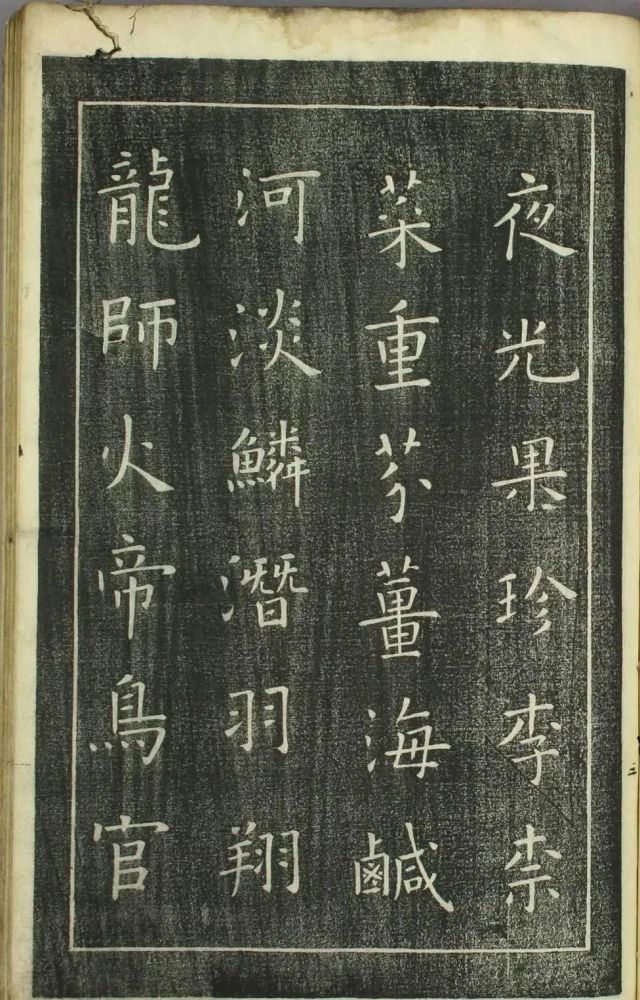 夜光果珍李柰
菜重芬薑海鹹
河淡鱗潛羽翔
龍師火帝鳥官